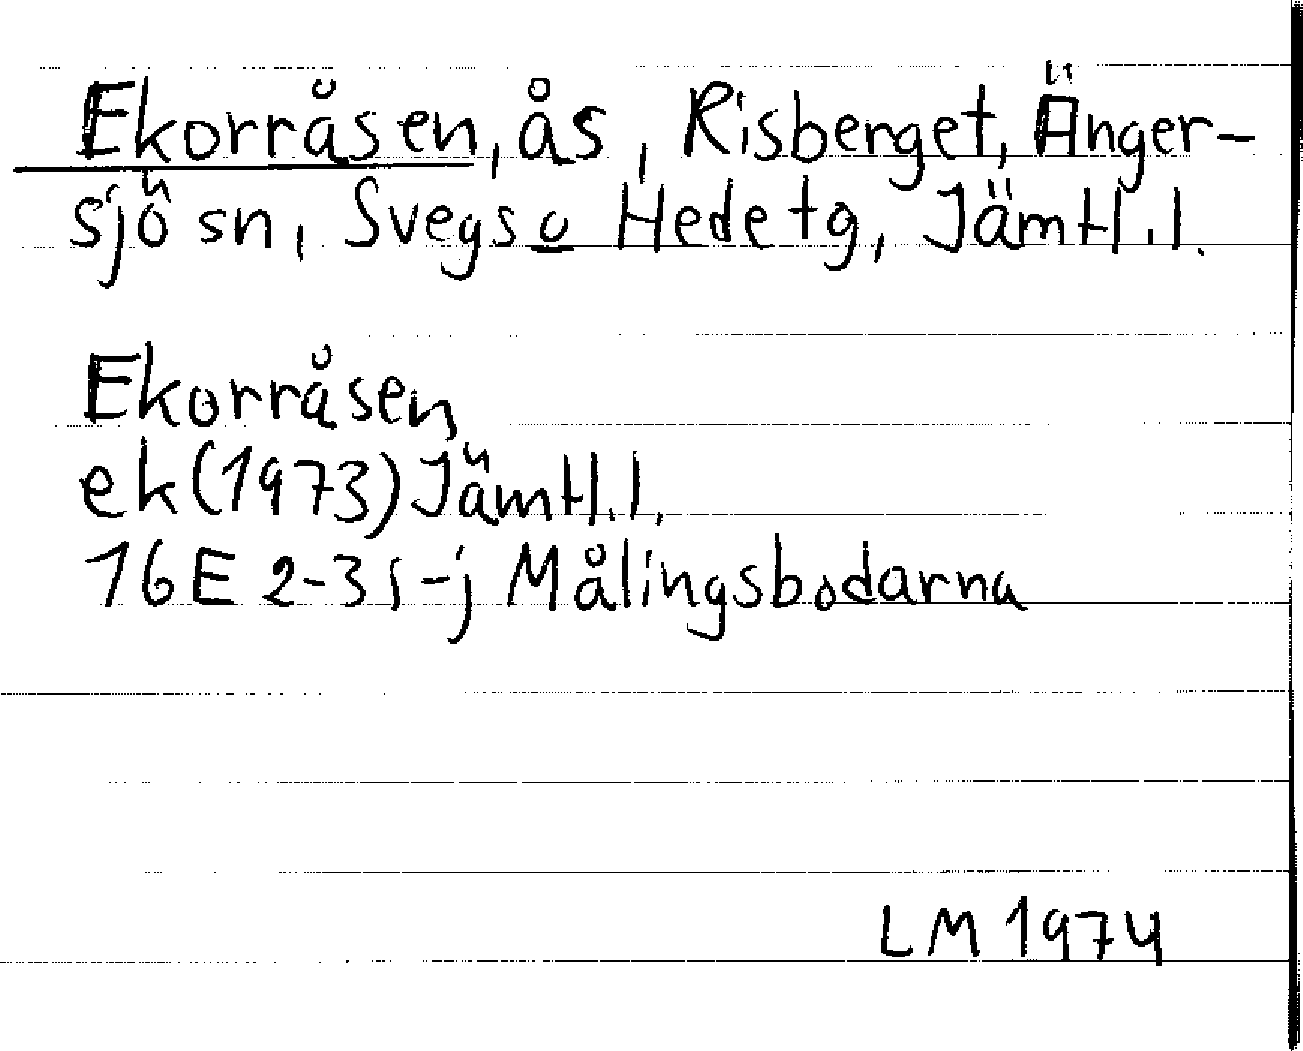 Ekorråsen, ås, Risberget, Änger-
sjö sn, Svegs o Hede tg, Jämtl.l.
Ekorråsen
ek(1973) Jämtl.l.
16E 2-3 i-j Målingsbodarna
LM 1974